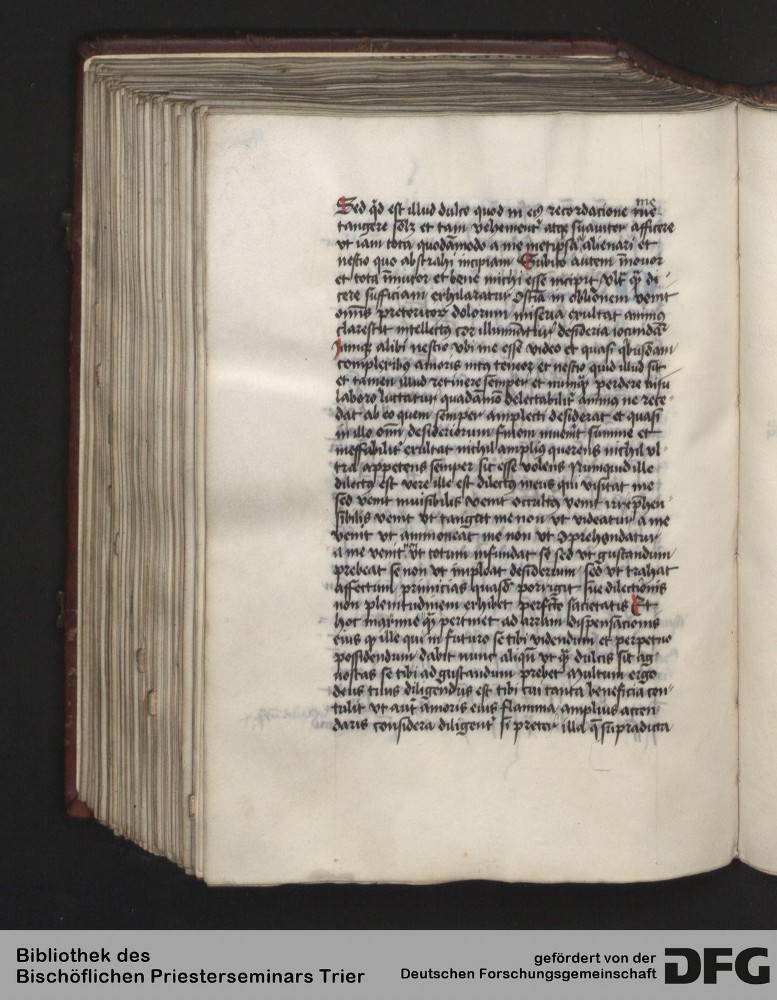 Sed qͥd est illud dulce quod in eiꝯ recordacione me
tangere solꝫ et tam vehementʳ atqꝫ suauiter afficere
vt iam tota quodāmodo a me metipsa alienari et
nescio quo abstrahi incipiam Subito autem īmouor
et tota īmutor et bene michi esse incipit vltᵃ qᵃ di
cere sufficiam exhilaratur ꝯsciā in obliōnem venit
omīs preteritoꝝ dolorum miseria exultat animꝯ
clarescit intellectꝯ cor illuminatur desideria iocundāʳ
iamqꝫ alibi nescio vbi me esse video et quasi qͥbusdam
complexibꝯ amoris intꝯ teneor et nescio quid illud sit
et tamen illud retinere semper et nūqᵃ perdere nisu
laboro luctatur quadāmō delectabilitʳ animꝯ ne rece
dat ab eo quem semper amplecti desiderat et quasi
in illo omī desideriorum finem inuenit summe et
ineffabilitʳ exultat nichil ampliꝯ querens nichil vl
tra appetens semper sic esse volens Numquid ille
dilectꝯ est vere ille est dilectꝯ meus qui visitat me
sed venit inuisibilis venit occultꝯ venit irreꝓhen
sibilis venit vt tangat me non vt videatur a me
venit vt ammoneat me non vt ꝯprehendatur
a me venit nō vt totum infundat se sed vt gustandum
prebeat se non vt impleat desiderium sed vt trahat
affectum primicias quasdā porrigit sue dilectionis
non plenitudinem exhibet perfectē sacietatis Et
hoc maxime qͥ pertinet ad arram dispensacionis
eius qꝫ ille qui in futuro se tibi videndum et perpetuo
possidendum dabit nunc aliqn̄ vt qᵃ dulcis sit ag
noscas se tibi ad gustandum prebet Multum ergo
deus tuus diligendus est tibi cui tanta beneficia con
tulit vt aut amoris eius flamma amplius accen
daris considera diligentʳ si preter illa q̄ supradicta
Bibliothek des
Bischöflichen Priesterseminars Trier
gefördert von der
Deutschen Forschungsgemeinschaft
DFG